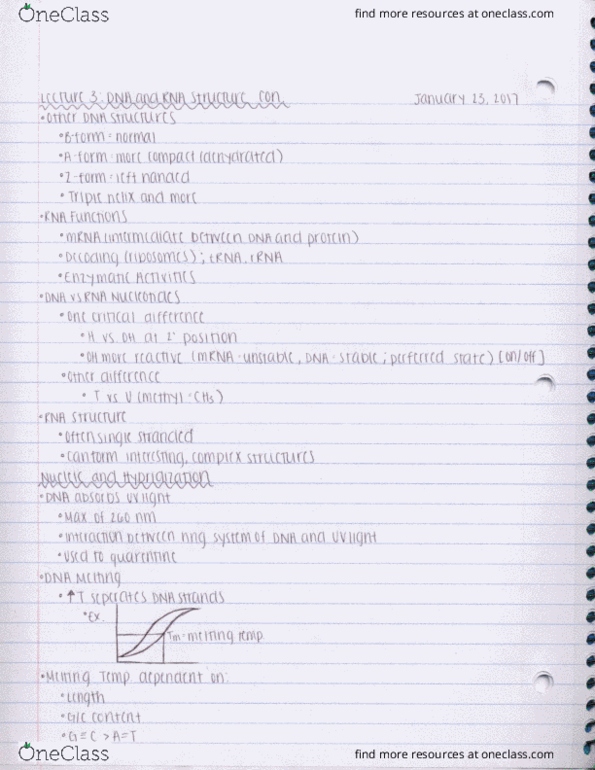 OneClass
find more resources at oneclass.com
Lecture 3: DNA and RNA Structure con.
January 23, 2017
•Other DNA structures
•B-form = normal
•A-form = more compact (dehydrated)
•Z-form = left handed
•Triple helix and more
•RNA Functions
•mRNA (intermediate between DNA and protein)
•Decoding (ribosomes); tRNA, rRNA
•Enzymatic Activities
•DNA vs RNA Nucleotides
•One critical difference
•H vs. OH at 2' position
•OH more reactive (mRNA-unstable, DNA-stable; preferred state) [on/off]
•Other difference
•T vs U (methyl-CH₃)
•RNA structure
•Often single stranded
•Can form interesting, complex structures
and Hybridization
•DNA absorbs UV light
•Max of 260 nm
•Interaction between ring system of DNA and UV light
•Used to
•DNA Melting
•↑T seperates DNA strands
•Ex.
Tm-melting temp
•Melting Temp dependent on:
•Length
•G/C content
•G≡C > A=T
OneClass
find more resources at oneclass.com